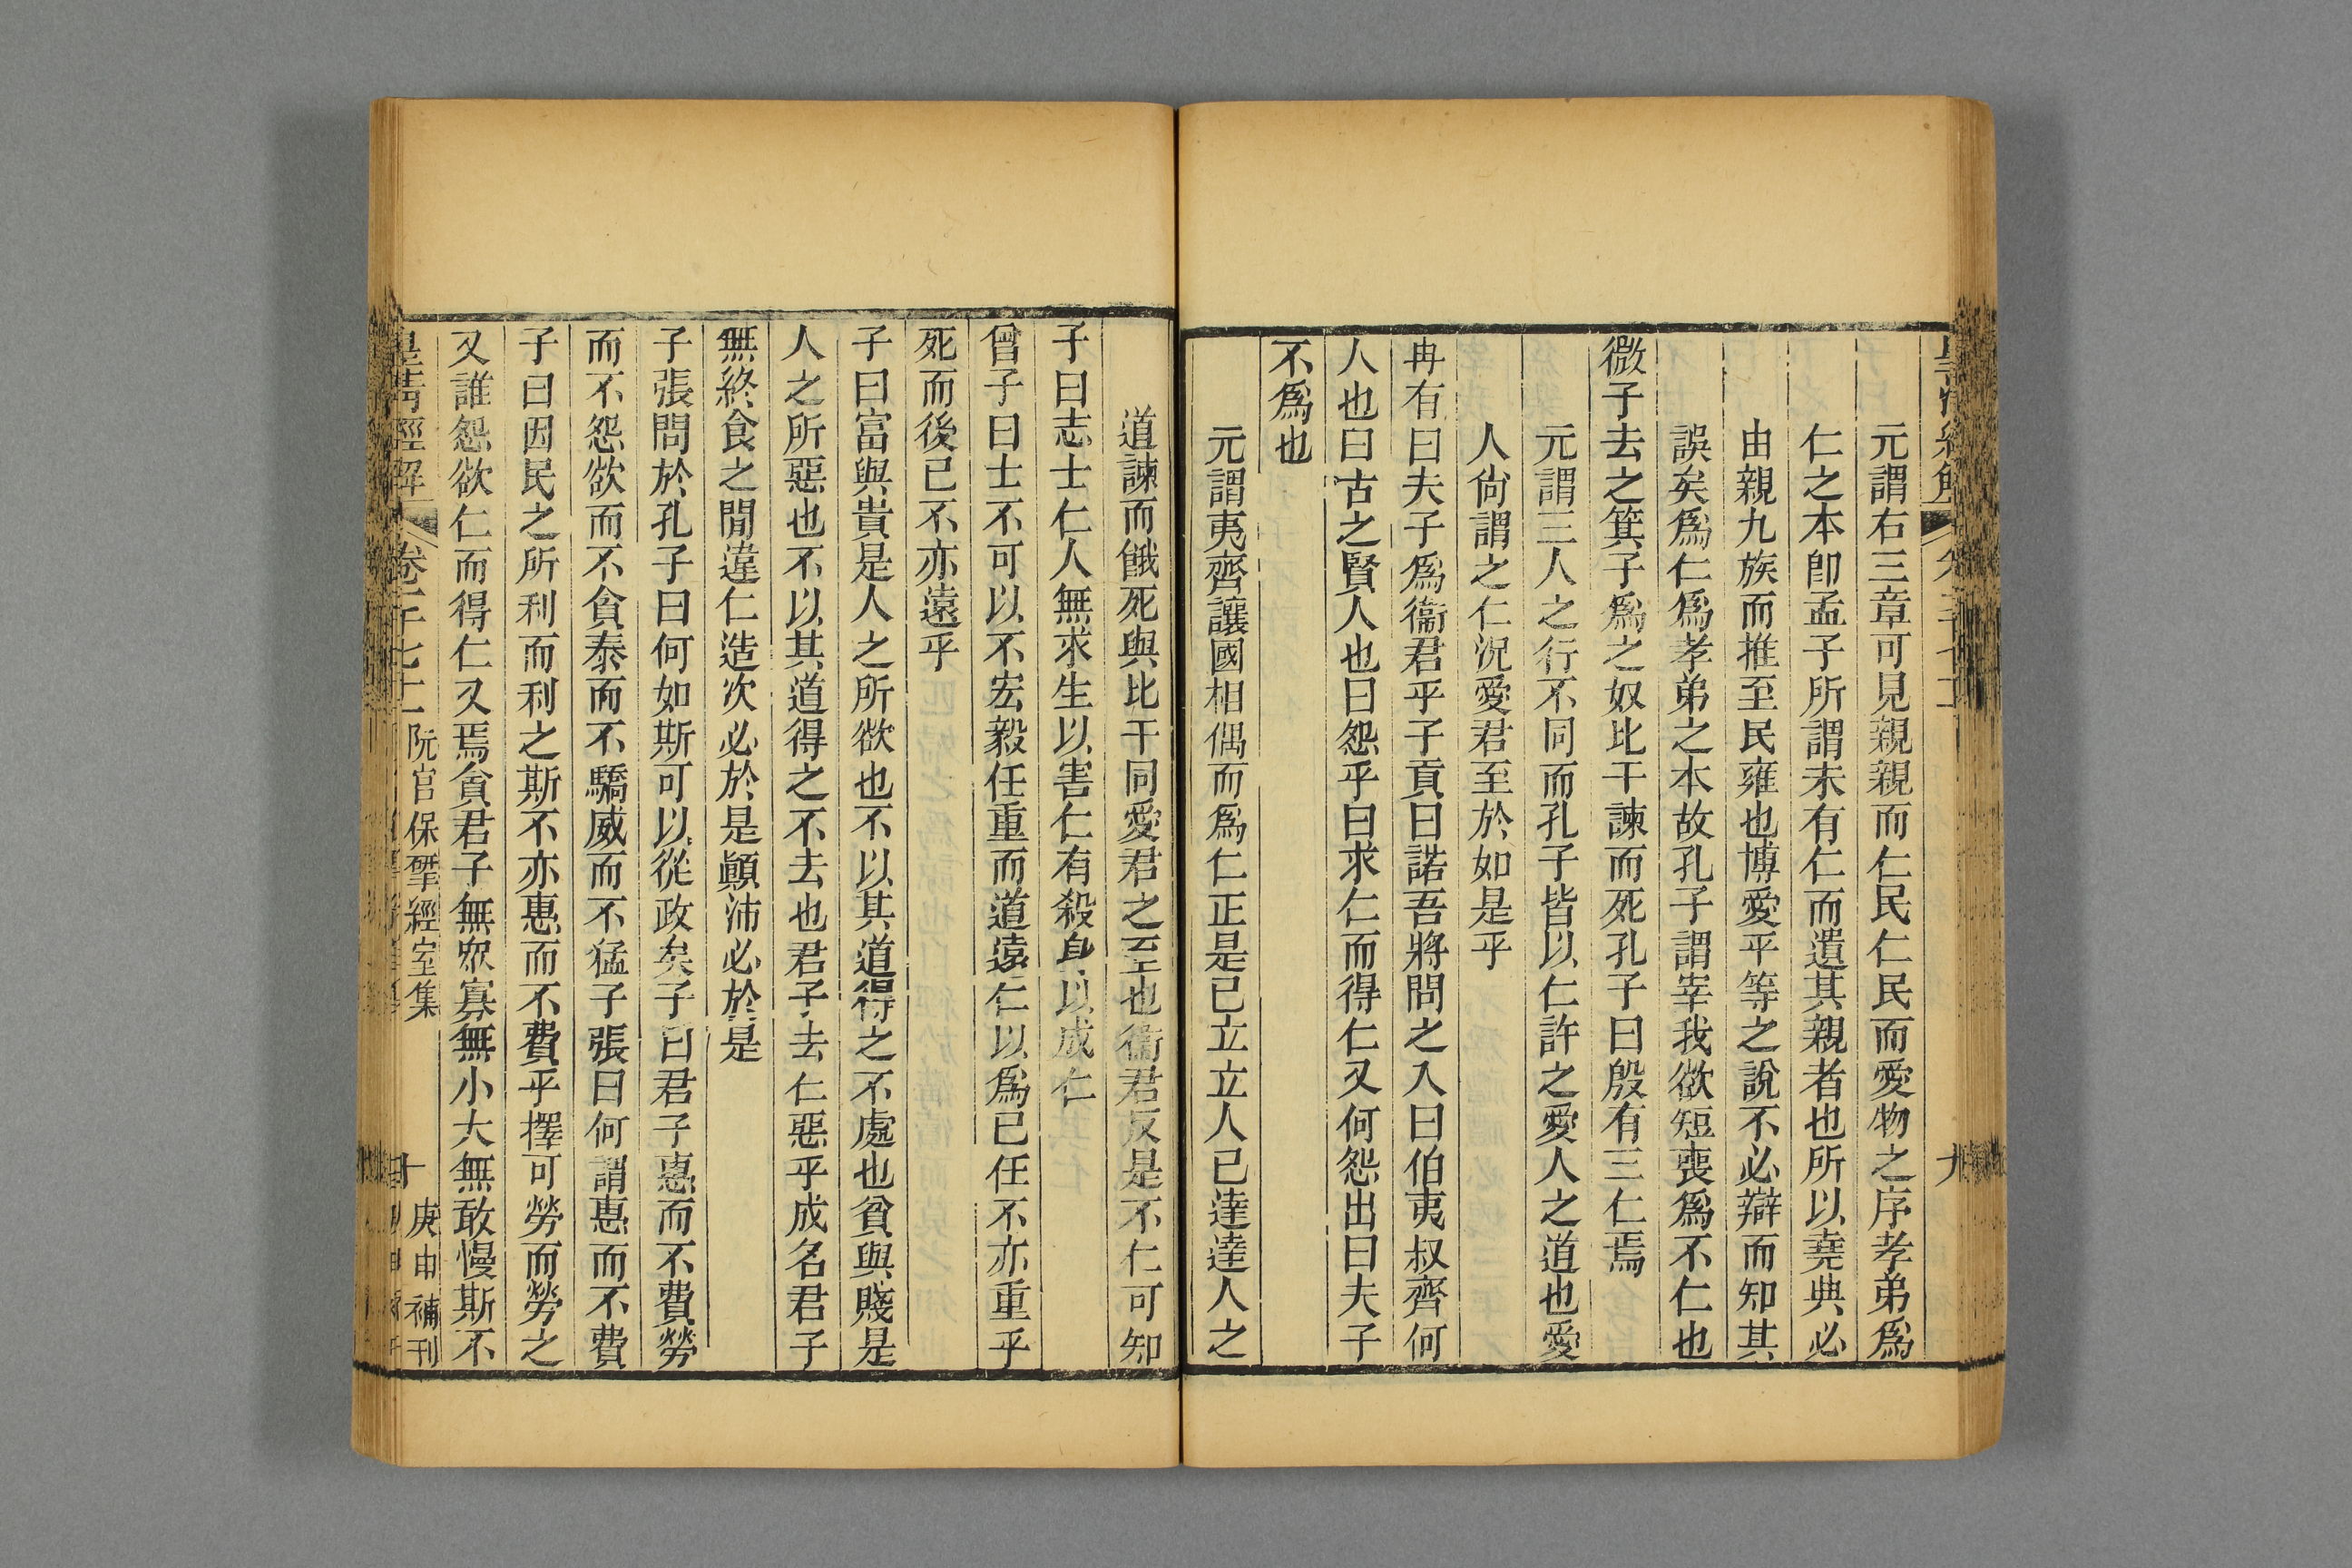 元謂右三章可見親親而仁民仁民而愛物之序孝弟爲
仁之本卽孟子所謂未有仁而遺其親者也所以堯典必
由親九族而推至民雍也博愛平等之說不必辯而知其
誤矣爲仁爲孝弟之本故孔子謂宰我欲短喪爲不仁也
微子去之箕子爲之奴比干諫而死孔子曰殷有三仁焉
元謂三人之行不同而孔子皆以仁許之愛人之道也愛
人尙謂之仁況愛君至於如是乎
冉有曰夫子爲衞君乎子貢曰諾吾將問之入曰伯夷叔齊何
人也曰古之賢人也曰怨乎曰求仁而得仁又何怨出曰夫子
不爲也
元謂夷齊讓國相偶而爲仁正是已立立人已達達人之
道諫而餓死與比干同愛君之至也衞君反是不仁可知
子曰志士仁人無求生以害仁有殺身以成仁
曾子曰士不可以不宏毅任重而道遠仁以爲已任不亦重乎
死而後已不亦遠乎
子曰富與貴是人之所欲也不以其道得之不處也貧與賤是
人之所惡也不以其道得之不去也君子去仁惡乎成名君子
無終食之閒違仁造次必於是顚沛必於是
子張問於孔子曰何如斯可以從政矣子曰君子惠而不費勞
而不怨欲而不貪泰而不驕威而不猛子張曰何謂惠而不費
子曰因民之所利而利之斯不亦惠而不費乎擇可勞而勞之
又誰怨欲仁而得仁又焉貪君子無眾寡無小大無敢慢斯不
皇清經解 卷一千七十一 阮宮保揅經室集 十 庚申補刊